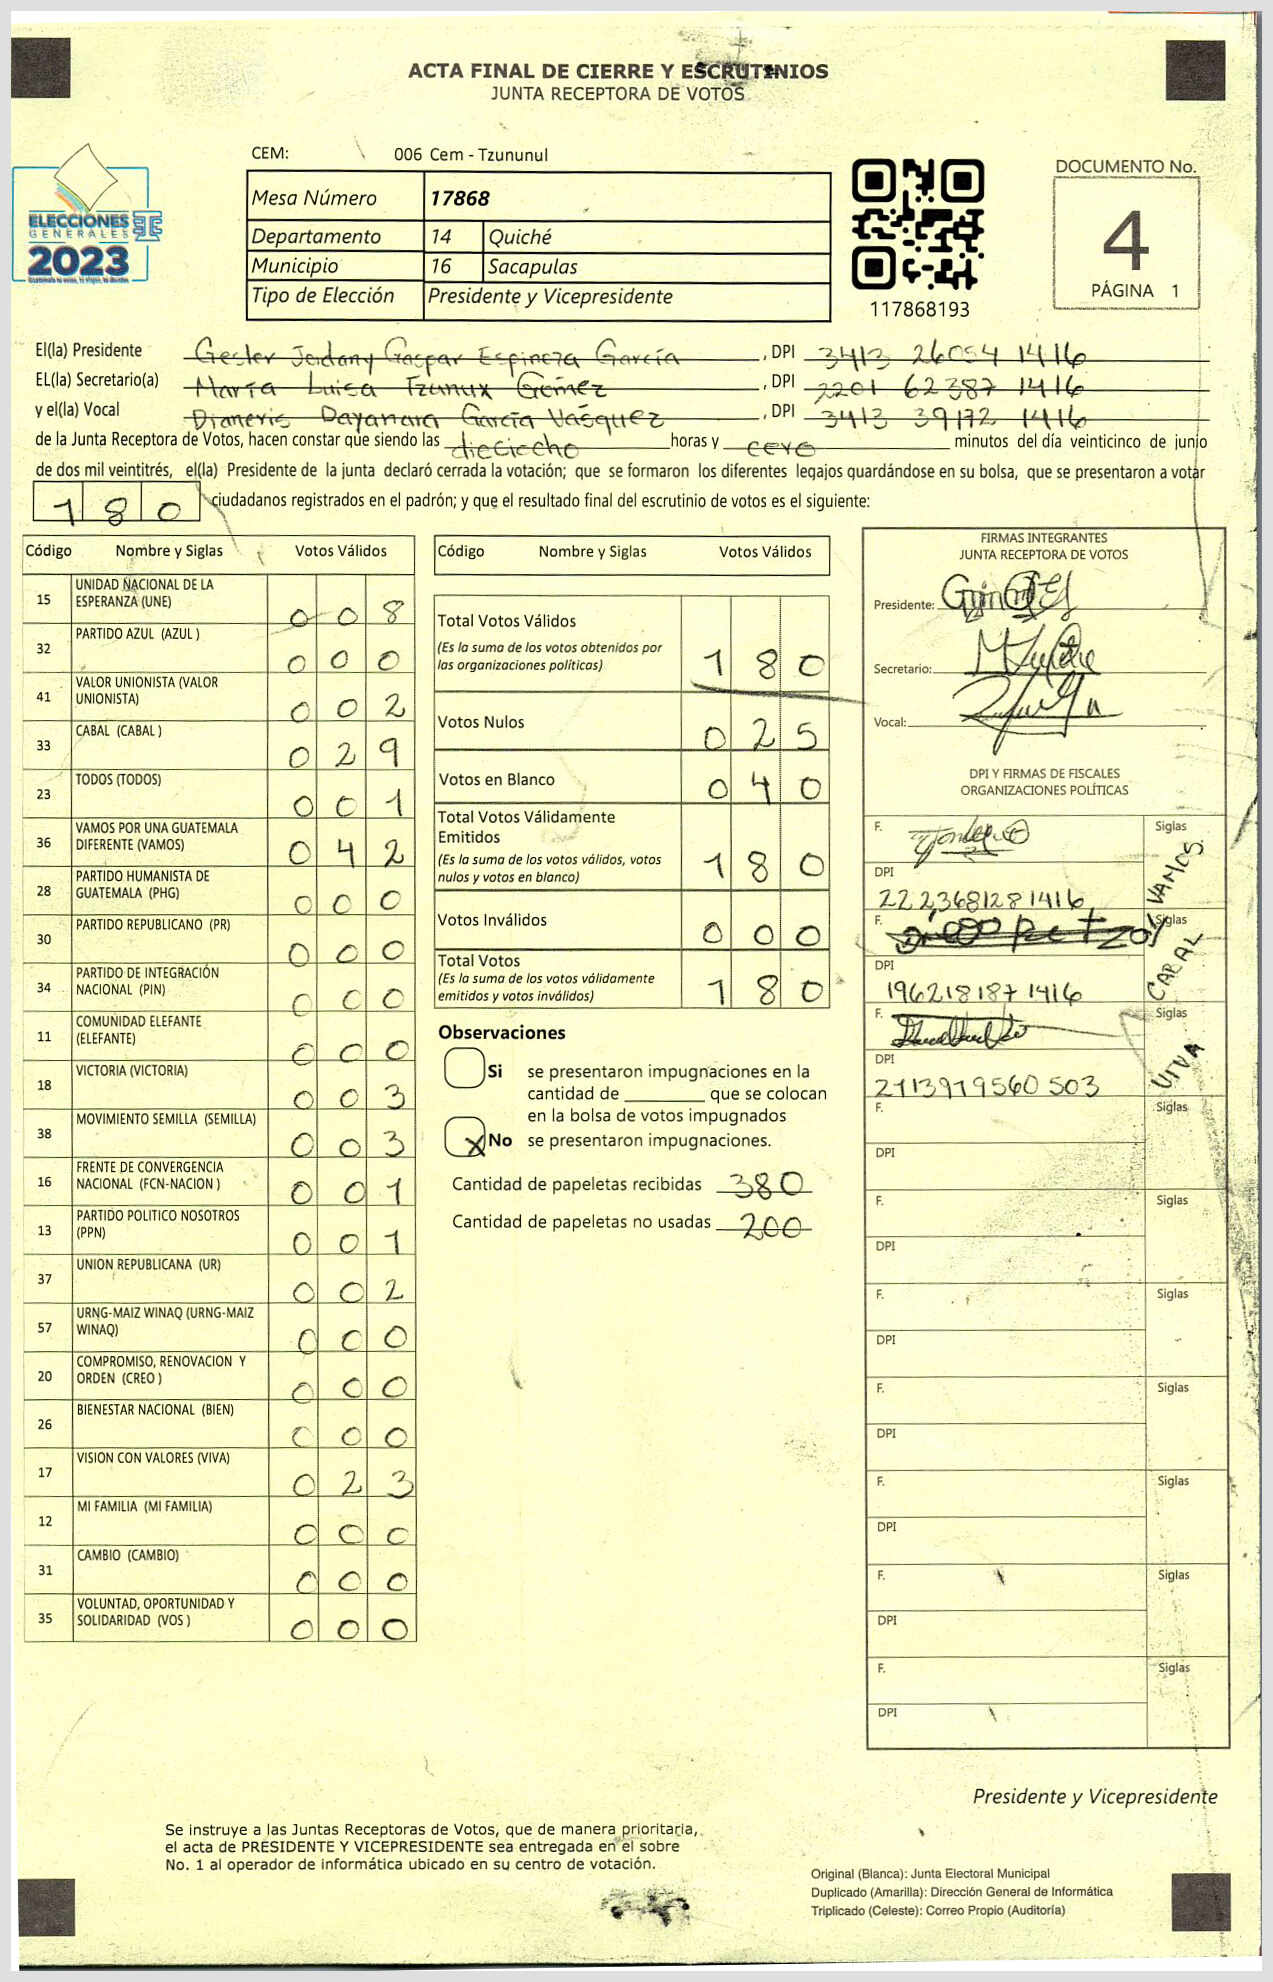 ACTA FINAL DE CIERRE Y ESCRUTINIOS
JUNTA RECEPTORA DE VOTOS
CEM: 006 Cem - Tzununul
Mesa Número 17868
Departamento 14 Quiché
Municipio 16 Sacapulas
Tipo de Elección Presidente y Vicepresidente
ELECCIONES
GENERALES
2023
117868193
DOCUMENTO No.
4
PÁGINA 1
El(la) Presidente Gesler Jeidany Gaspar Espinoza García, DPI 3413 26054 1416
EL(la) Secretario(a) María Luisa Tzunux Gómez, DPI 2201 62387 1416
y el(la) Vocal Dianeris Dayanara García Vásquez, DPI 3413 39172 1416
de la Junta Receptora de Votos, hacen constar que siendo las dieciocho horas y cero minutos del día veinticinco de junio
de dos mil veintitrés, el(la) Presidente de la junta declaró cerrada la votación; que se formaron los diferentes legajos guardándose en su bolsa, que se presentaron a votar
180 ciudadanos registrados en el padrón; y que el resultado final del escrutinio de votos es el siguiente:
Código Nombre y Siglas Votos Válidos
15 UNIDAD NACIONAL DE LA ESPERANZA (UNE) 008
32 PARTIDO AZUL (AZUL ) 000
41 VALOR UNIONISTA (VALOR UNIONISTA) 002
33 CABAL (CABAL ) 029
23 TODOS (TODOS) 001
36 VAMOS POR UNA GUATEMALA DIFERENTE (VAMOS) 042
28 PARTIDO HUMANISTA DE GUATEMALA (PHG) 000
30 PARTIDO REPUBLICANO (PR) 000
34 PARTIDO DE INTEGRACIÓN NACIONAL (PIN) 000
11 COMUNIDAD ELEFANTE (ELEFANTE) 000
18 VICTORIA (VICTORIA) 003
38 MOVIMIENTO SEMILLA (SEMILLA) 003
16 FRENTE DE CONVERGENCIA NACIONAL (FCN-NACION ) 001
13 PARTIDO POLITICO NOSOTROS (PPN) 001
37 UNION REPUBLICANA (UR) 002
57 URNG-MAIZ WINAQ (URNG-MAIZ WINAQ) 000
20 COMPROMISO, RENOVACION Y ORDEN (CREO ) 000
26 BIENESTAR NACIONAL (BIEN) 000
17 VISION CON VALORES (VIVA) 023
12 MI FAMILIA (MI FAMILIA) 000
31 CAMBIO (CAMBIO) 000
35 VOLUNTAD, OPORTUNIDAD Y SOLIDARIDAD (VOS ) 000
Código Nombre y Siglas Votos Válidos
Total Votos Válidos 180
(Es la suma de los votos obtenidos por
las organizaciones políticas)
Votos Nulos 025
Votos en Blanco 040
Total Votos Válidamente
Emitidos 180
(Es la suma de los votos válidos, votos
nulos y votos en blanco)
Votos Inválidos 000
Total Votos 180
(Es la suma de los votos válidamente
emitidos y votos inválidos)
Observaciones
Si se presentaron impugnaciones en la
cantidad de ________ que se colocan
en la bolsa de votos impugnados
X No se presentaron impugnaciones.
Cantidad de papeletas recibidas 380
Cantidad de papeletas no usadas 200
FIRMAS INTEGRANTES
JUNTA RECEPTORA DE VOTOS
Presidente:
Secretario:
Vocal:
DPI Y FIRMAS DE FISCALES
ORGANIZACIONES POLÍTICAS
F. Siglas VAMOS
DPI 2223681281416
F. Siglas CABAL
DPI 1962181871416
F. Siglas VIVA
DPI 2713979560503
F. Siglas
DPI
F. Siglas
DPI
F. Siglas
DPI
F. Siglas
DPI
F. Siglas
DPI
F. Siglas
DPI
F. Siglas
DPI
Presidente y Vicepresidente
Se instruye a las Juntas Receptoras de Votos, que de manera prioritaria,
el acta de PRESIDENTE Y VICEPRESIDENTE sea entregada en el sobre
No. 1 al operador de informática ubicado en su centro de votación.
Original (Blanca): Junta Electoral Municipal
Duplicado (Amarilla): Dirección General de Informática
Triplicado (Celeste): Correo Propio (Auditoría)